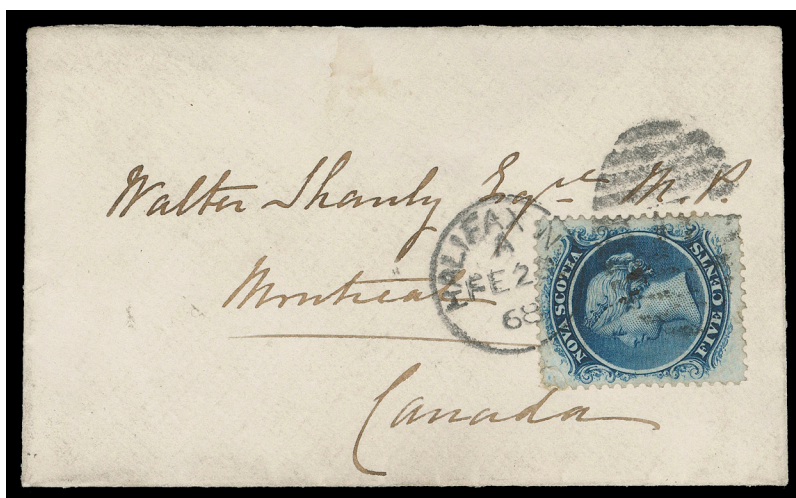 Walter Shanly Esqre M.P.
Montreal
Canada
HALIFAX N
A
FE 2
68
NOVA SCOTIA
FIVE CENTS